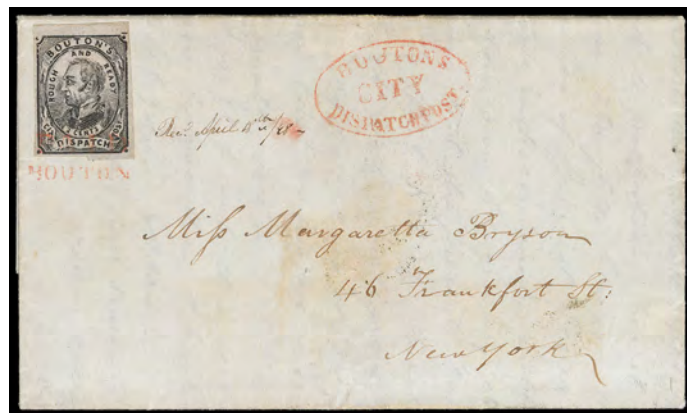 BOUTON'S
ROUGH AND READY
2 CENTS
CITY DISPATCH POST
BOUTON
BOUTON'S
CITY
DISPATCH POST.
April
Miſs Margaretta Bryson
46 Frankfort St:
New York